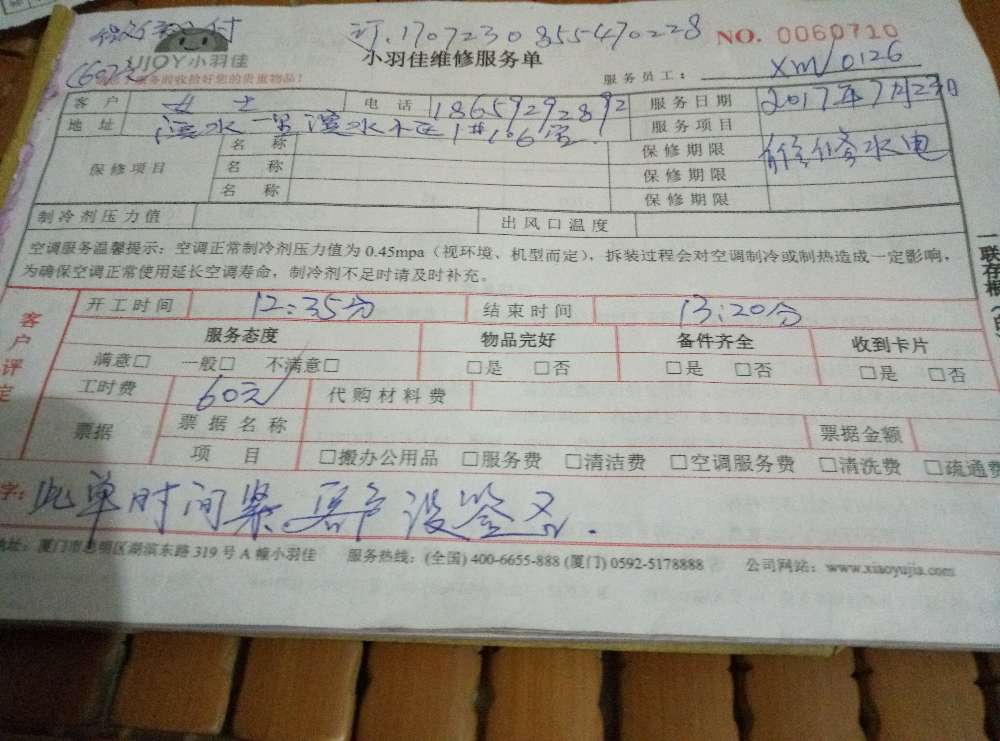 订.1707230855470228 NO. 0060710
UJOY小羽佳 小羽佳维修服务单
服务前收拾好您的贵重物品! 服务员工: XM/0126
(60元)
客户 女士 电话 18659292892 服务日期 2017年7月23日
地址 溪水一里溪水小区1#106室 服务项目 维修水电
保修项目 名称 保修期限
名称 保修期限
名称 保修期限
制冷剂压力值 出风口温度
空调服务温馨提示:空调正常制冷剂压力值为0.45mpa(视环境、机型而定),拆装过程会对空调制冷或制热造成一定影响,
为确保空调正常使用延长空调寿命,制冷剂不足时请及时补充。
一联存根
客户评定
开工时间 12:35分 结束时间 13:20分
服务态度 物品完好 备件齐全 收到卡片
满意□ 一般□ 不满意□ □是 □否 □是 □否 □是 □否
工时费 60元 代购材料费
票据 票据名称 票据金额
项目 □搬办公用品 □服务费 □清洁费 □空调服务费 □清洗费 □疏通费
字: 此单时间紧.客户没签名.
地址:厦门市思明区湖滨东路319号A幢小羽佳 服务热线:(全国) 400-6655-888 (厦门) 0592-5178888 公司网站:www.xiaoyujia.com